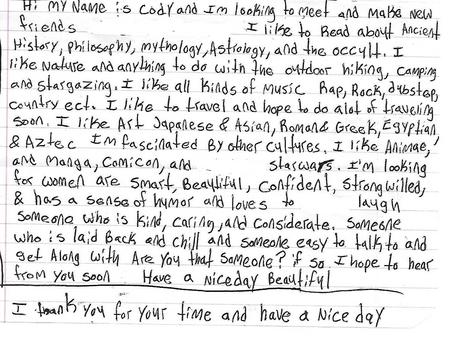 Hi my Name is Cody and I'm looking to meet and make New
friends I like to Read about Ancient
History, philosophy, mythology, Astrology, and the occult. I
like Nature and anything to do with the outdoor hiking, camping
and stargazing. I like all kinds of music Rap, Rock, dubstep,
country ect. I like to travel and hope to do alot of traveling
soon. I like Art Japanese & Asian, Roman & Greek, Egyptian
& Aztec I'm fascinated By other cultures. I like Animae,
and Manga, Comicon, and starwars. I'm looking
for women are smart, Beautiful, Confident, Strong willed,
& has a sense of humor and loves to laugh
Someone who is kind, caring, and Considerate. Someone
who is laid Back and chill and someone easy to talk to and
get Along with Are You that someone? if so I hope to hear
from you soon Have a Nice day Beautiful
I thank you for your time and have a Nice day